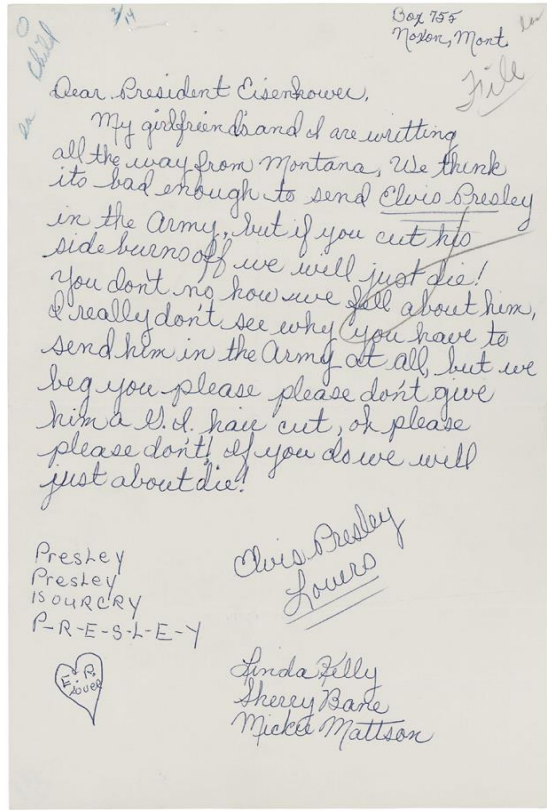 3/14
Child
Box 755
Noxon, Mont
File
Dear President Eisenhower,
My girlfriend's and I are writting
all the way from Montana, We think
its bad enough to send Elvis Presley
in the Army, but if you cut his
side burns off we will just die!
You don't no how we fell about him,
I really don't see why you have to
send him in the Army at all, but we
beg you please please don't give
him a G.I. hair cut, oh please
please don't! If you do we will
just about die!
Elvis Presley
Lovers
Presley
Presley
IS OUR CRY
P-R-E-S-L-E-Y
E.P.
lover
Linda Kelly
Sherry Bane
Mickie Mattson